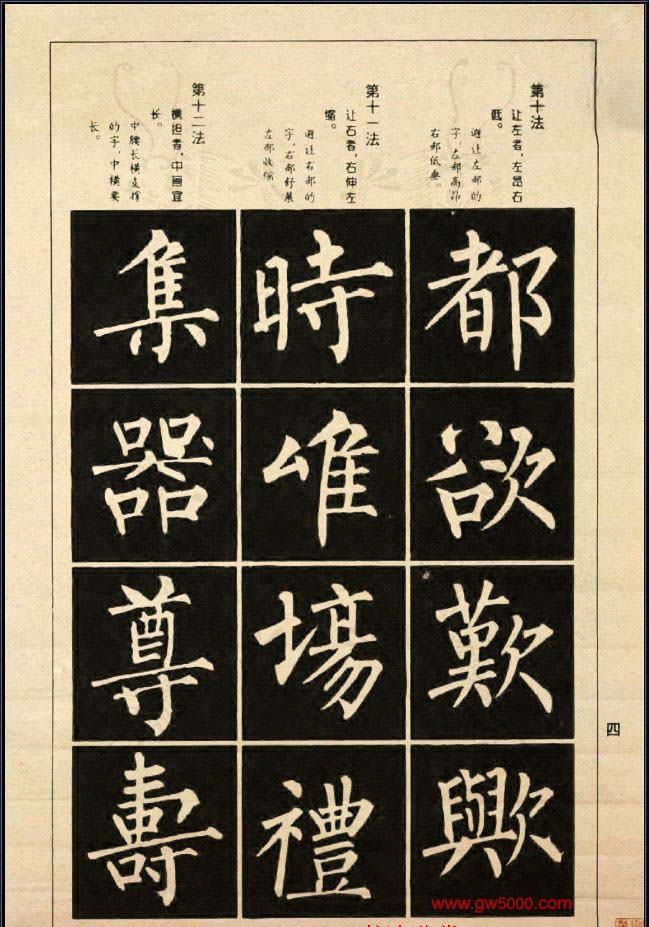 第十法
让左者，左昂右
低。
避让左部的
字，左部高昂
右部低垂。
都
欲
歎
歟
第十一法
让右者，右伸左
缩。
避让右部的
字，右部舒展
左部收缩
時
塲
禮
第十二法
横担者，中画宜
长。
中腰长横支撑
的字，中横要
长。
集
器
尊
壽
四
www.gw5000.com